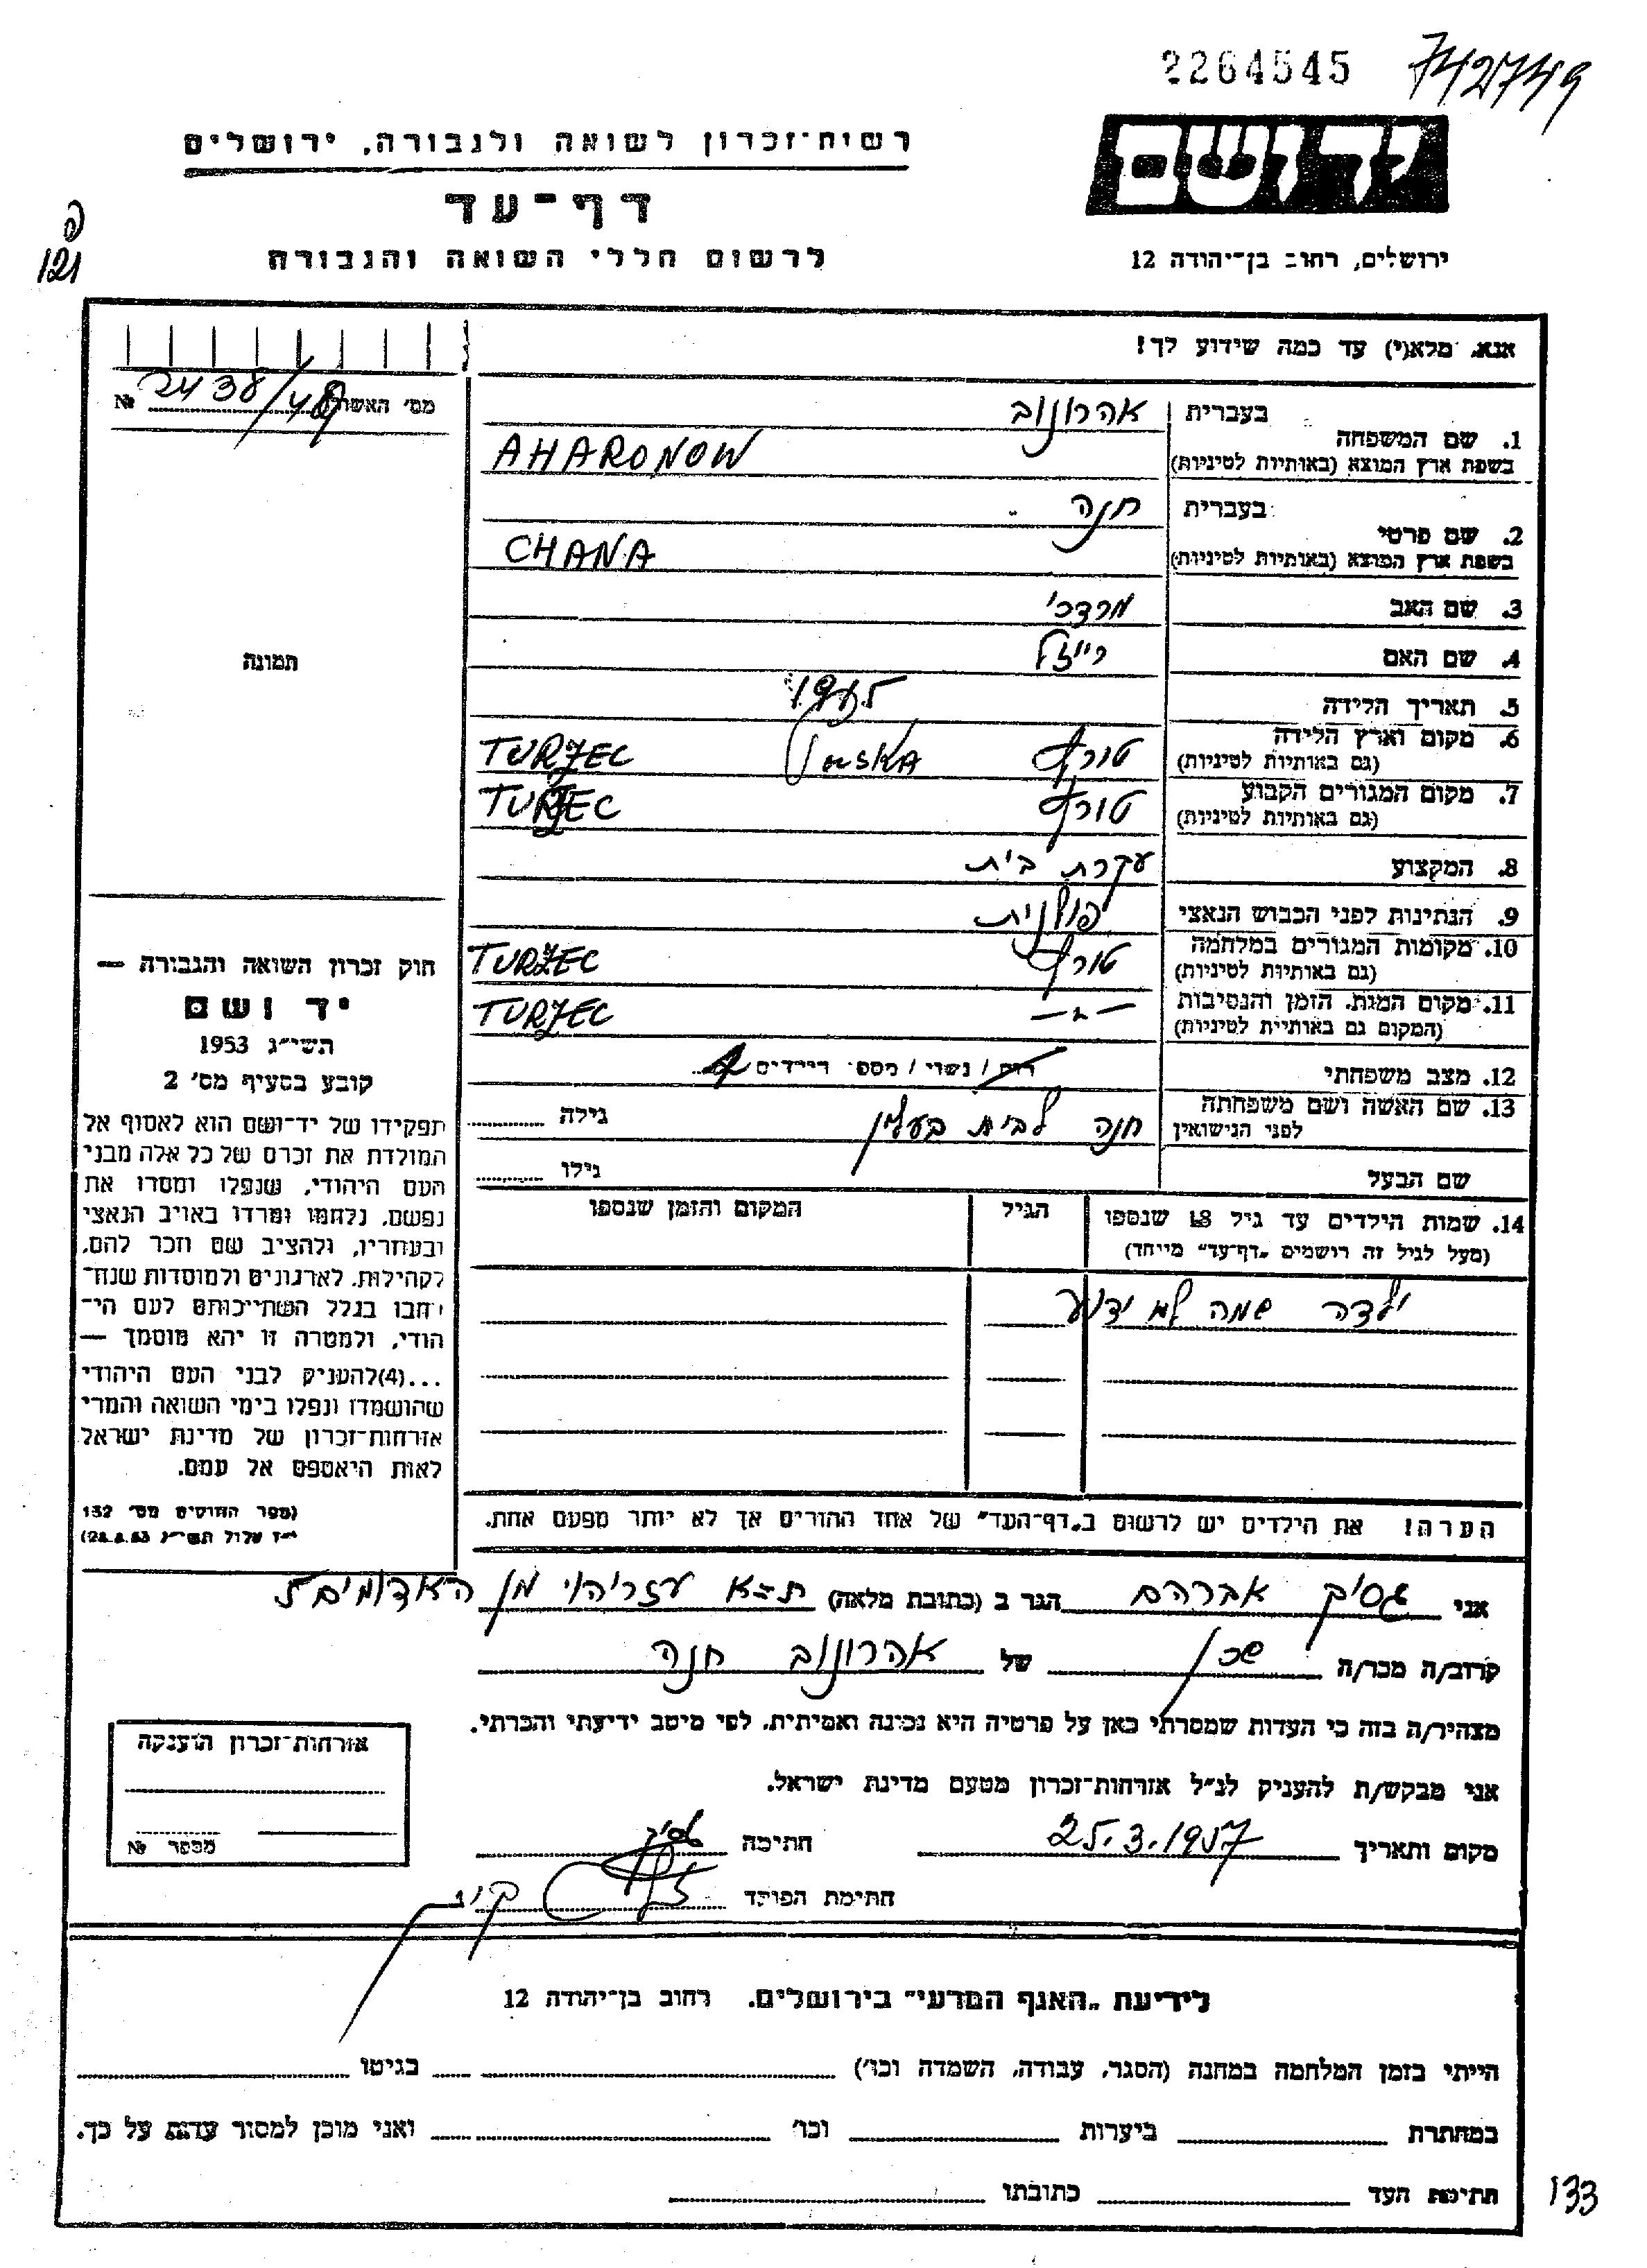 2264545 742749
יד ושם
רשות־זכרון לשואה ולגבורה, ירושלים
דף־עד
לרשום חללי השואה והגבורה
ירושלים, רחוב בן־יהודה 12
121
אנא, מלא(י) עד כמה שידוע לך!
מס' האשרור 2438/48 №
1. שם המשפחה
בעברית אהרונוב
בשפת ארץ המוצא (באותיות לטיניות) AHARONOW
2. שם פרטי
בעברית חנה
בשפת ארץ המוצא (באותיות לטיניות) CHANA
3. שם האב מרדכי
4. שם האם רייזל
תמונה
5. תאריך הלידה 1915
6. מקום וארץ הלידה טורץ Polska TURZEC
(גם באותיות לטיניות)
7. מקום המגורים הקבוע טורץ TURZEC
(גם באותיות לטיניות)
8. המקצוע עקרת בית
9. הנתינות לפני הכבוש הנאצי פולנית
10. מקומות המגורים במלחמה טורץ TURZEC
(גם באותיות לטיניות)
11. מקום המות, הזמן והנסיבות -"- TURZEC
(המקום גם באותיות לטיניות)
12. מצב משפחתי רוק / נשוי / מספר הילדים
13. שם האשה ושם משפחתה
לפני הנישואין חנה לבית בעלין גילה
שם הבעל גילו
14. שמות הילדים עד גיל 18 שנספו הגיל המקום והזמן שנספו
(מעל לגיל זה רושמים „דף־עד" מייחד)
ילדה שמה לא ידוע
הערה! את הילדים יש לרשום ב„דף־העד" של אחד ההורים אך לא יותר מפעם אחת.
חוק זכרון השואה והגבורה —
יד ושם
תשי"ג 1953
קובע בסעיף מס' 2
תפקידו של יד־ושם הוא לאסוף אל
המולדת את זכרם של כל אלה מבני
העם היהודי, שנפלו ומסרו את
נפשם, נלחמו ומרדו באויב הנאצי
ובעוזריו, ולהציב שם וזכר להם,
לקהילות, לארגונים ולמוסדות שנח־
רבו בגלל השתייכותם לעם הי־
הודי, ולמטרה זו יהא מוסמך —
...(4)להעניק לבני העם היהודי
שהושמדו ונפלו בימי השואה והמרי
אזרחות־זכרון של מדינת ישראל
לאות היאספם אל עמם.
(ספר החוקים מס' 132
י"ז אלול תשי"ג 28.8.53)
אני גסיק אברהם הגר ב (כתובת מלאה) ת"א עזריהו מן האדומים 5
קרוב/ה מכר/ה שכן של אהרונוב חנה
מצהיר/ה בזה כי העדות שמסרתי כאן על פרטיה היא נכונה ואמיתית, לפי מיטב ידיעתי והכרתי.
אני מבקש/ת להעניק לנ"ל אזרחות־זכרון מטעם מדינת ישראל.
מקום ותאריך 25.3.1957 חתימה
חתימת הפוקד
אזרחות־זכרון הוענקה
מספר №
לידיעת „האגף המדעי" בירושלים, רחוב בן־יהודה 12
הייתי בזמן המלחמה במחנה (הסגר, עבודה, השמדה וכו') בגיטו
במחתרת ביערות וכו' ואני מוכן למסור עדות על כך.
חתימת העד כתובתו
133